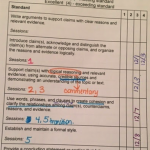 Excellent (4) - exceeding standard
Standard
1 2 3 4
Write arguments to support claims with clear reasons
and relevant evidence.
Sessions:
Introduce claim(s), acknowledge and distinguish the
claim(s) from alternate or opposing claims, and organize
the reasons and evidence logically.
Sessions: 1
Support claim(s) with logical reasoning and relevant
evidence, using accurate, credible sources and
demonstrating an understanding of the topic or text.
Sessions: 2, 3 commentary
Use words, phrases, and clauses to create cohesion and
clarify the relationships among claim(s), counterclaims,
reasons, and evidence.
Sessions: 4.5 transition
Establish and maintain a formal style.
Sessions: 5